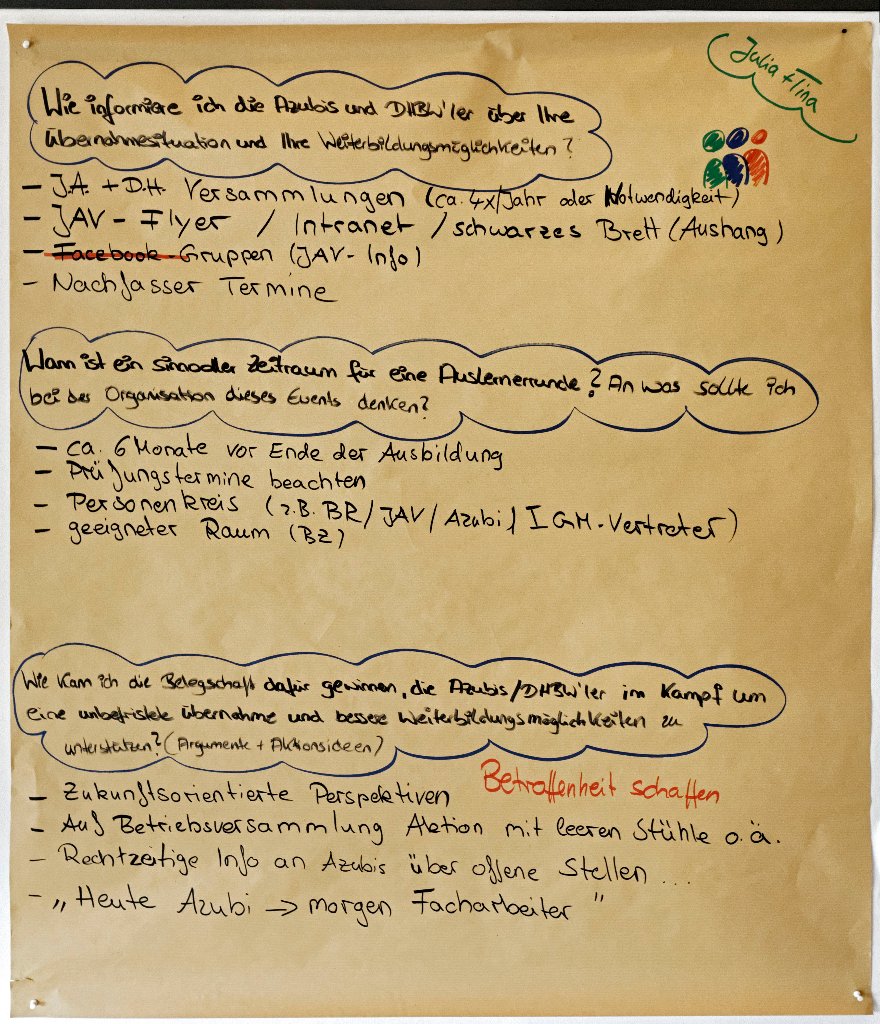 Julia + Tina
Wie informiere ich die Azubis und DHBW'ler über Ihre
Übernahmesituation und Ihre Weiterbildungsmöglichkeiten?
- J.A. + D.H. Versammlungen (ca. 4x/Jahr oder Notwendigkeit)
- JAV - Flyer / Intranet / schwarzes Brett (Aushang)
- Facebook-Gruppen (JAV-Info)
- Nachfasser Termine
Wann ist ein sinnvoller Zeitraum für eine Auslernerrunde? An was sollte ich
bei der Organisation dieses Events denken?
- ca. 6 Monate vor Ende der Ausbildung
- Prüfungstermine beachten
- Personenkreis (z.B. BR/JAV/Azubi/IGM-Vertreter)
- geeigneter Raum (BZ)
Wie kann ich die Belegschaft dafür gewinnen, die Azubis/DHBW'ler im Kampf um
eine unbefristete Übernahme und bessere Weiterbildungsmöglichkeiten zu
unterstützen? (Argumente + Aktionsideen)
Betroffenheit schaffen
- Zukunftsorientierte Perspektiven
- Auf Betriebsversammlung Aktion mit leeren Stühle o.ä.
- Rechtzeitige Info an Azubis über offene Stellen ...
- „Heute Azubi → morgen Facharbeiter"